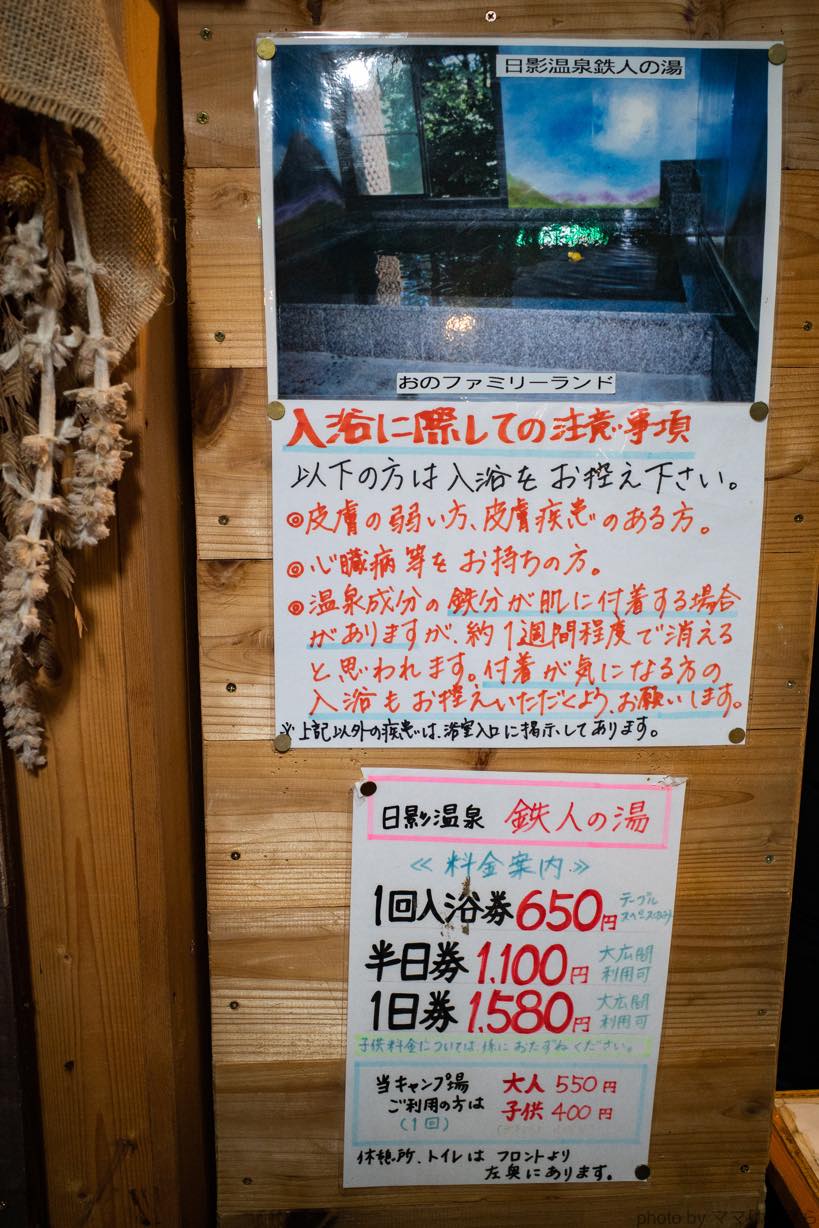 日影温泉鉄人の湯
おのファミリーランド
入浴に際しての注意事項
以下の方は入浴をお控え下さい。
◎皮膚の弱い方、皮膚疾患のある方。
◎心臓病等をお持ちの方。
◎温泉成分の鉄分が肌に付着する場合
がありますが、約1週間程度で消える
と思われます。付着が気になる方の
入浴もお控えいただくよう、お願いします。
※上記以外の疾患は、浴室入口に掲示してあります。
日影温泉 鉄人の湯
≪料金案内≫
1回入浴券 650円 テーブル
スペースのみ
半日券 1,100円 大広間
利用可
1日券 1,580円 大広間
利用可
子供料金については、係におたずねください。
当キャンプ場 大人 550円
ご利用の方は 子供 400円
(1回)
休憩所、トイレは フロントより
左奥にあります。
photo by ママ